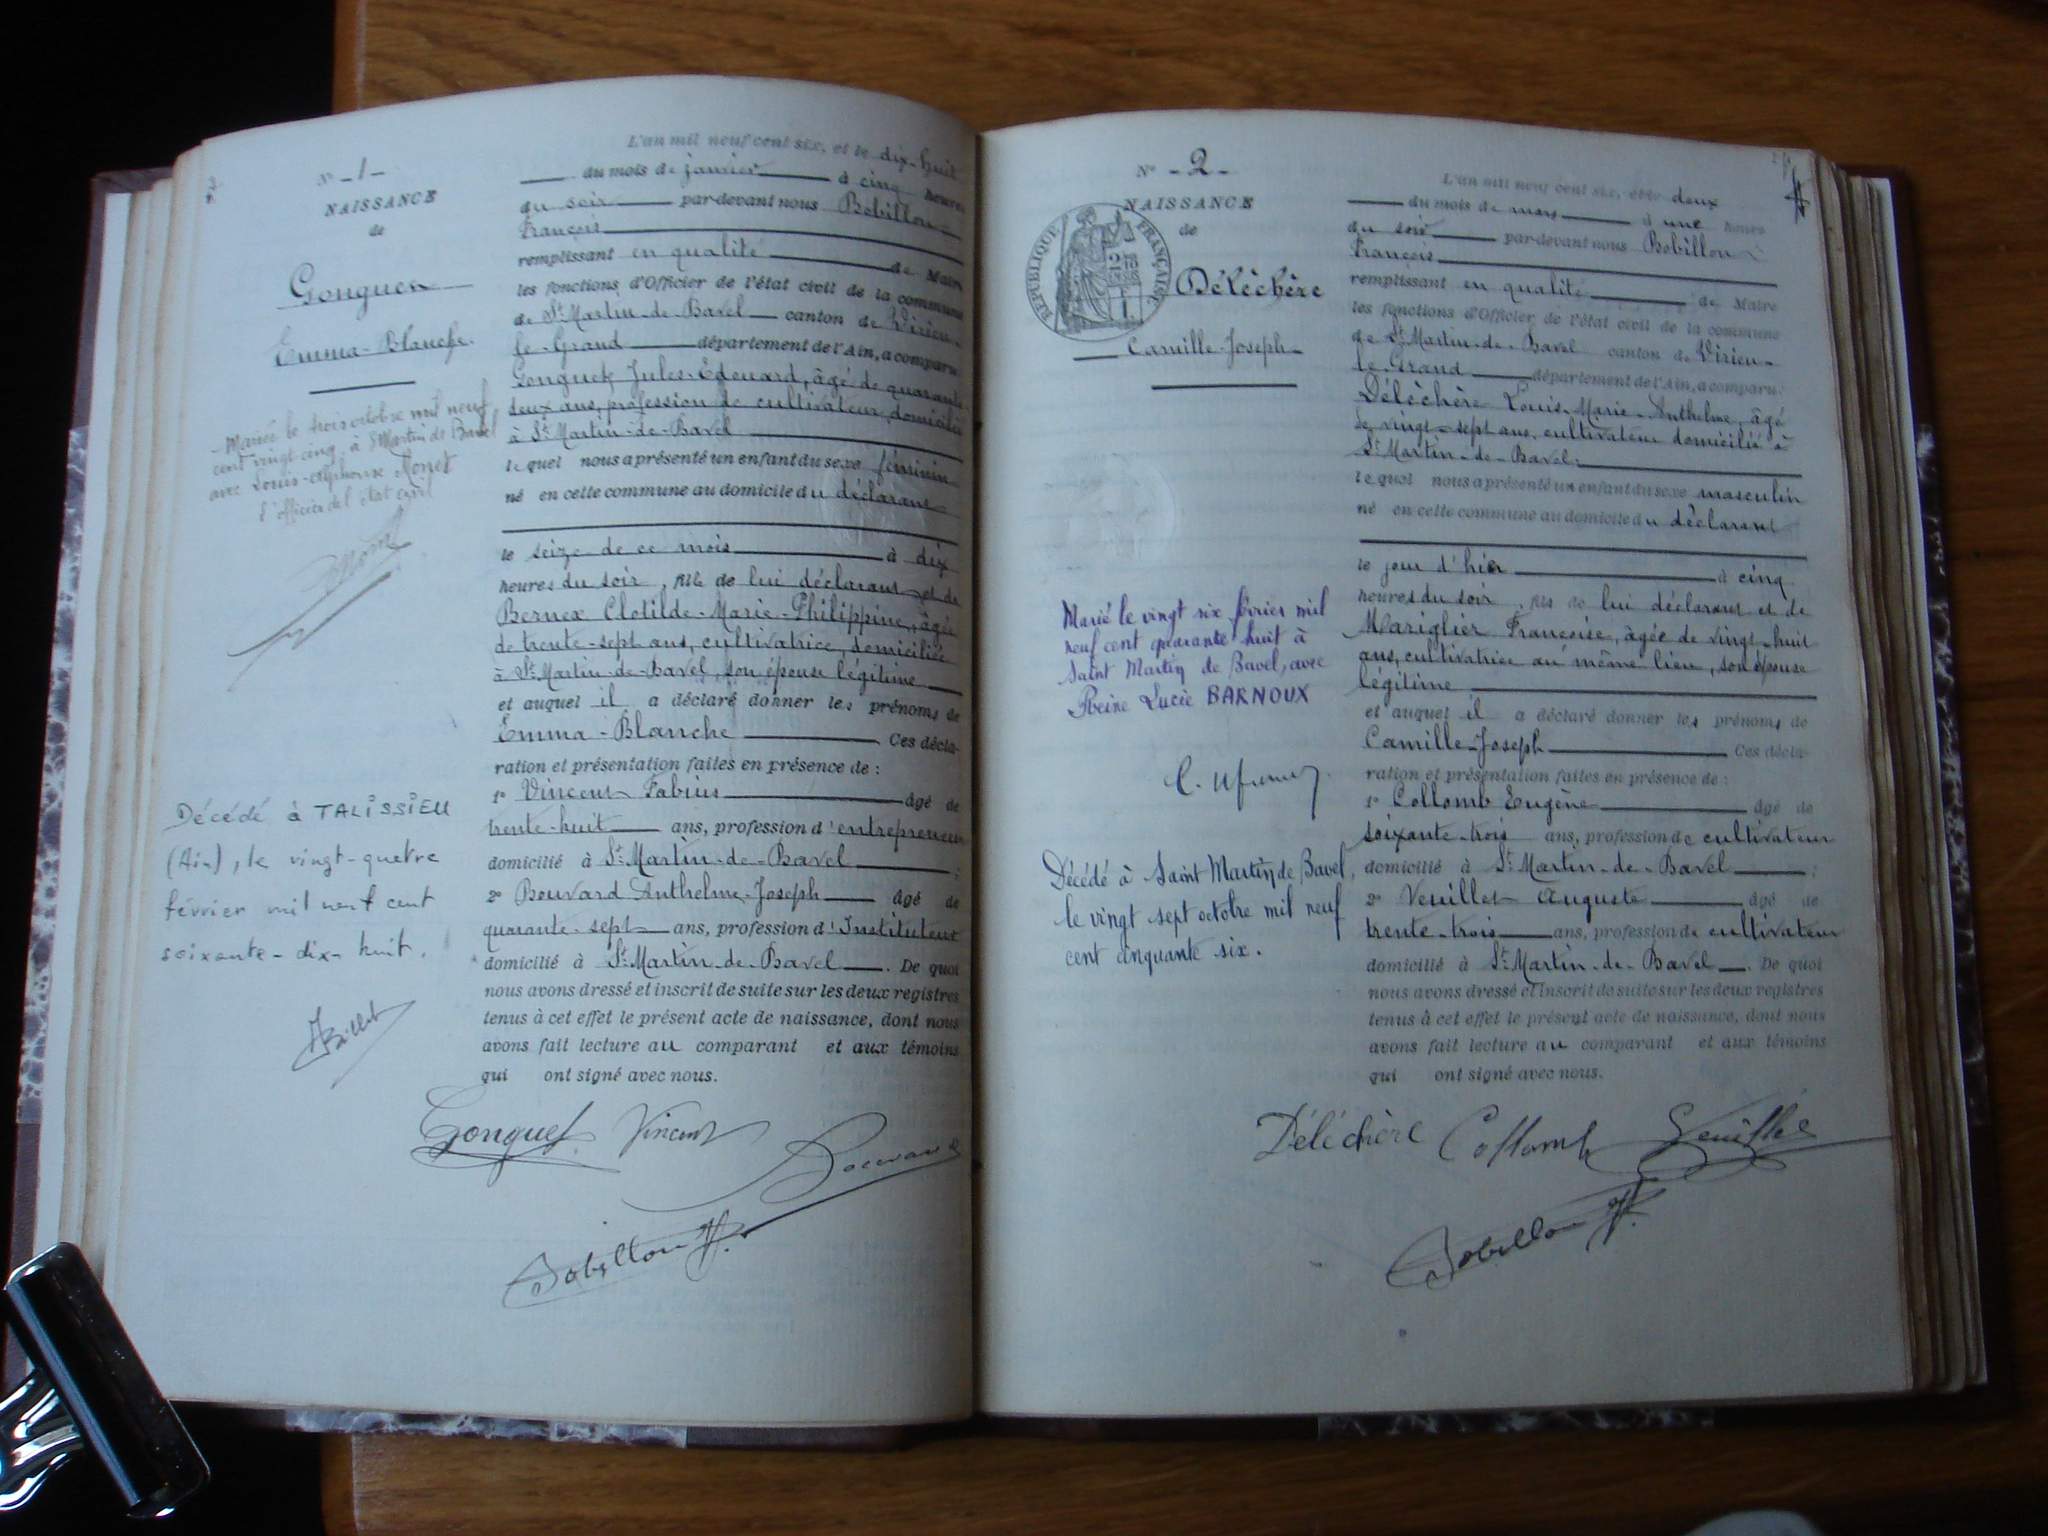 N° -1-
NAISSANCE
de
Gonguet
Emma-Blanche.
Mariée le trois octobre mil neuf
cent vingt cinq, à St Martin de Bavel
avec Louis-Alphonse
l'officier de l'état civil
Décédé à TALISSIEU
(Ain), le vingt-quatre
février mil neuf cent
soixante-dix-huit.
JBillet
L'an mil neuf cent six, et le dix-huit
du mois de janvier à cinq heures
du soir par-devant nous Bobillon
François
remplissant en qualité de Maire
les fonctions d'Officier de l'état civil de la commune
de St. Martin-de-Bavel canton de Virieu-
le-Grand département de l'Ain, a comparu
Gonguet Jules-Edouard, âgé de quarante-
deux ans, profession de cultivateur, domicilié
à St. Martin-de-Bavel
lequel nous a présenté un enfant du sexe féminin
né en cette commune au domicile du déclarant
le seize de ce mois à dix
heures du soir, fils de lui déclarant et de
Bernex Clotilde-Marie-Philippine, âgée
de trente-sept ans, cultivatrice, domiciliée
à St. Martin-de-Bavel, son épouse légitime
et auquel il a déclaré donner les prénoms de
Emma-Blanche Ces décla-
ration et présentation faites en présence de :
1° Vincent Fabius âgé de
trente-huit ans, profession d'entrepreneur
domicilié à St. Martin-de-Bavel ;
2° Bouvard Anthelme-Joseph âgé de
quarante-sept ans, profession d'Instituteur
domicilié à St. Martin-de-Bavel. De quoi
nous avons dressé et inscrit de suite sur les deux registres
tenus à cet effet le présent acte de naissance, dont nous
avons fait lecture au comparant et aux témoins
qui ont signé avec nous.
Gonguet Vincent
Bouvard
Bobillon F.
N° -2-
NAISSANCE
de
RÉPUBLIQUE FRANÇAISE
Délèchère
Camille-Joseph-
Marié le vingt six février mil
neuf cent quarante huit à
Saint Martin de Bavel, avec
Reine Lucie BARNOUX
Décédé à Saint Martin de Bavel,
le vingt sept octobre mil neuf
cent cinquante six.
L'an mil neuf cent six, et le deux
du mois de mars à une heure
du soir par-devant nous Bobillon
François
remplissant en qualité de Maire
les fonctions d'Officier de l'état civil de la commune
de St. Martin-de-Bavel canton de Virieu-
le-Grand département de l'Ain, a comparu:
Délèchère Louis-Marie-Anthelme, âgé
de vingt-sept ans, cultivateur domicilié à
St. Martin-de-Bavel.
lequel nous a présenté un enfant du sexe masculin
né en cette commune au domicile du déclarant
le jour d'hier à cinq
heures du soir, fils de lui déclarant et de
Mariglier Françoise, âgée de vingt-huit
ans, cultivatrice au même lieu, son épouse
légitime
et auquel il a déclaré donner les prénoms de
Camille-Joseph Ces décla-
ration et présentation faites en présence de :
1° Collomb Eugène âgé de
soixante-trois ans, profession de cultivateur
domicilié à St. Martin-de-Bavel ;
2° Veuillet Auguste âgé de
trente-trois ans, profession de cultivateur
domicilié à St. Martin-de-Bavel. De quoi
nous avons dressé et inscrit de suite sur les deux registres
tenus à cet effet le présent acte de naissance, dont nous
avons fait lecture au comparant et aux témoins
qui ont signé avec nous.
Délèchère Collomb Veuillet
Bobillon F.